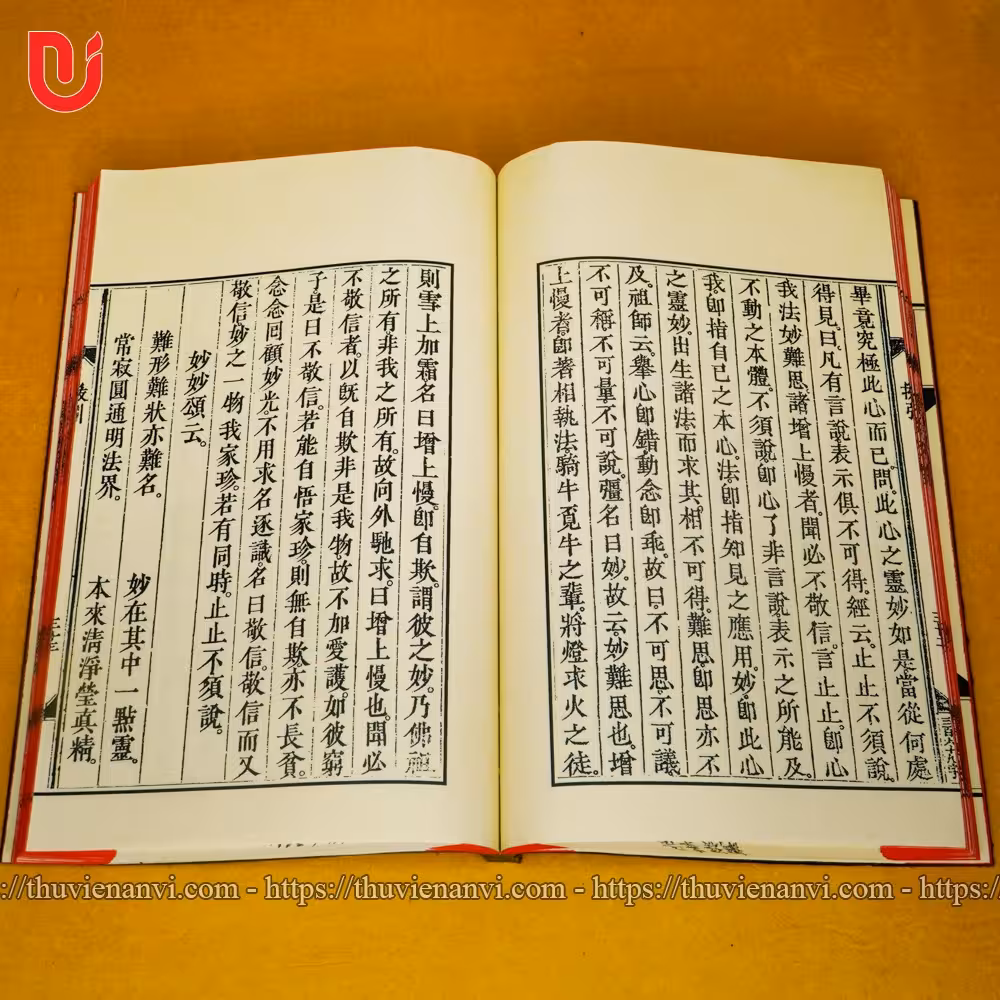 畢竟究極此心而已。問。此心之靈妙如是。當從何處
得見。曰。凡有言說表示俱不可得。經云。止止不須說。
我法妙難思。諸增上慢者。聞必不敬信。言止止。卽心
不動之本體。不須說。卽心了非言說表示之所能及。
我卽指自己之本心。法卽指知見之應用。妙卽此心
之靈妙。出生諸法。而求其相不可得。難思。卽思亦不
及。祖師云。舉心卽錯。動念卽乖。故曰不可思不可議
不可稱。不可量。不可說。彊名曰妙。故云。妙難思也。增
上慢者。卽著相執法。騎牛覓牛之輩。將燈求火之徒。
則雪上加霜名曰增上慢。卽自欺。謂彼之妙。乃佛祖
之所有。非我之所有。故向外馳求。曰增上慢也。聞必
不敬信者。以旣自欺非是我物。故不加愛護。如彼窮
子。是曰不敬信。若能自悟家珍。則無自欺。亦不長貧。
念念囘顧妙光。不用求名逐識。名曰敬信。敬信而又
敬信。妙之一物我家珍。若有同時。止止不須說。
妙妙頌云。
難形難狀亦難名。 妙在其中一點靈。
常寂圓通明法界。 本來清淨瑩真精。
https://thuvienanvi.com - https://thuvienanvi.com - https://thuvienanvi.com -